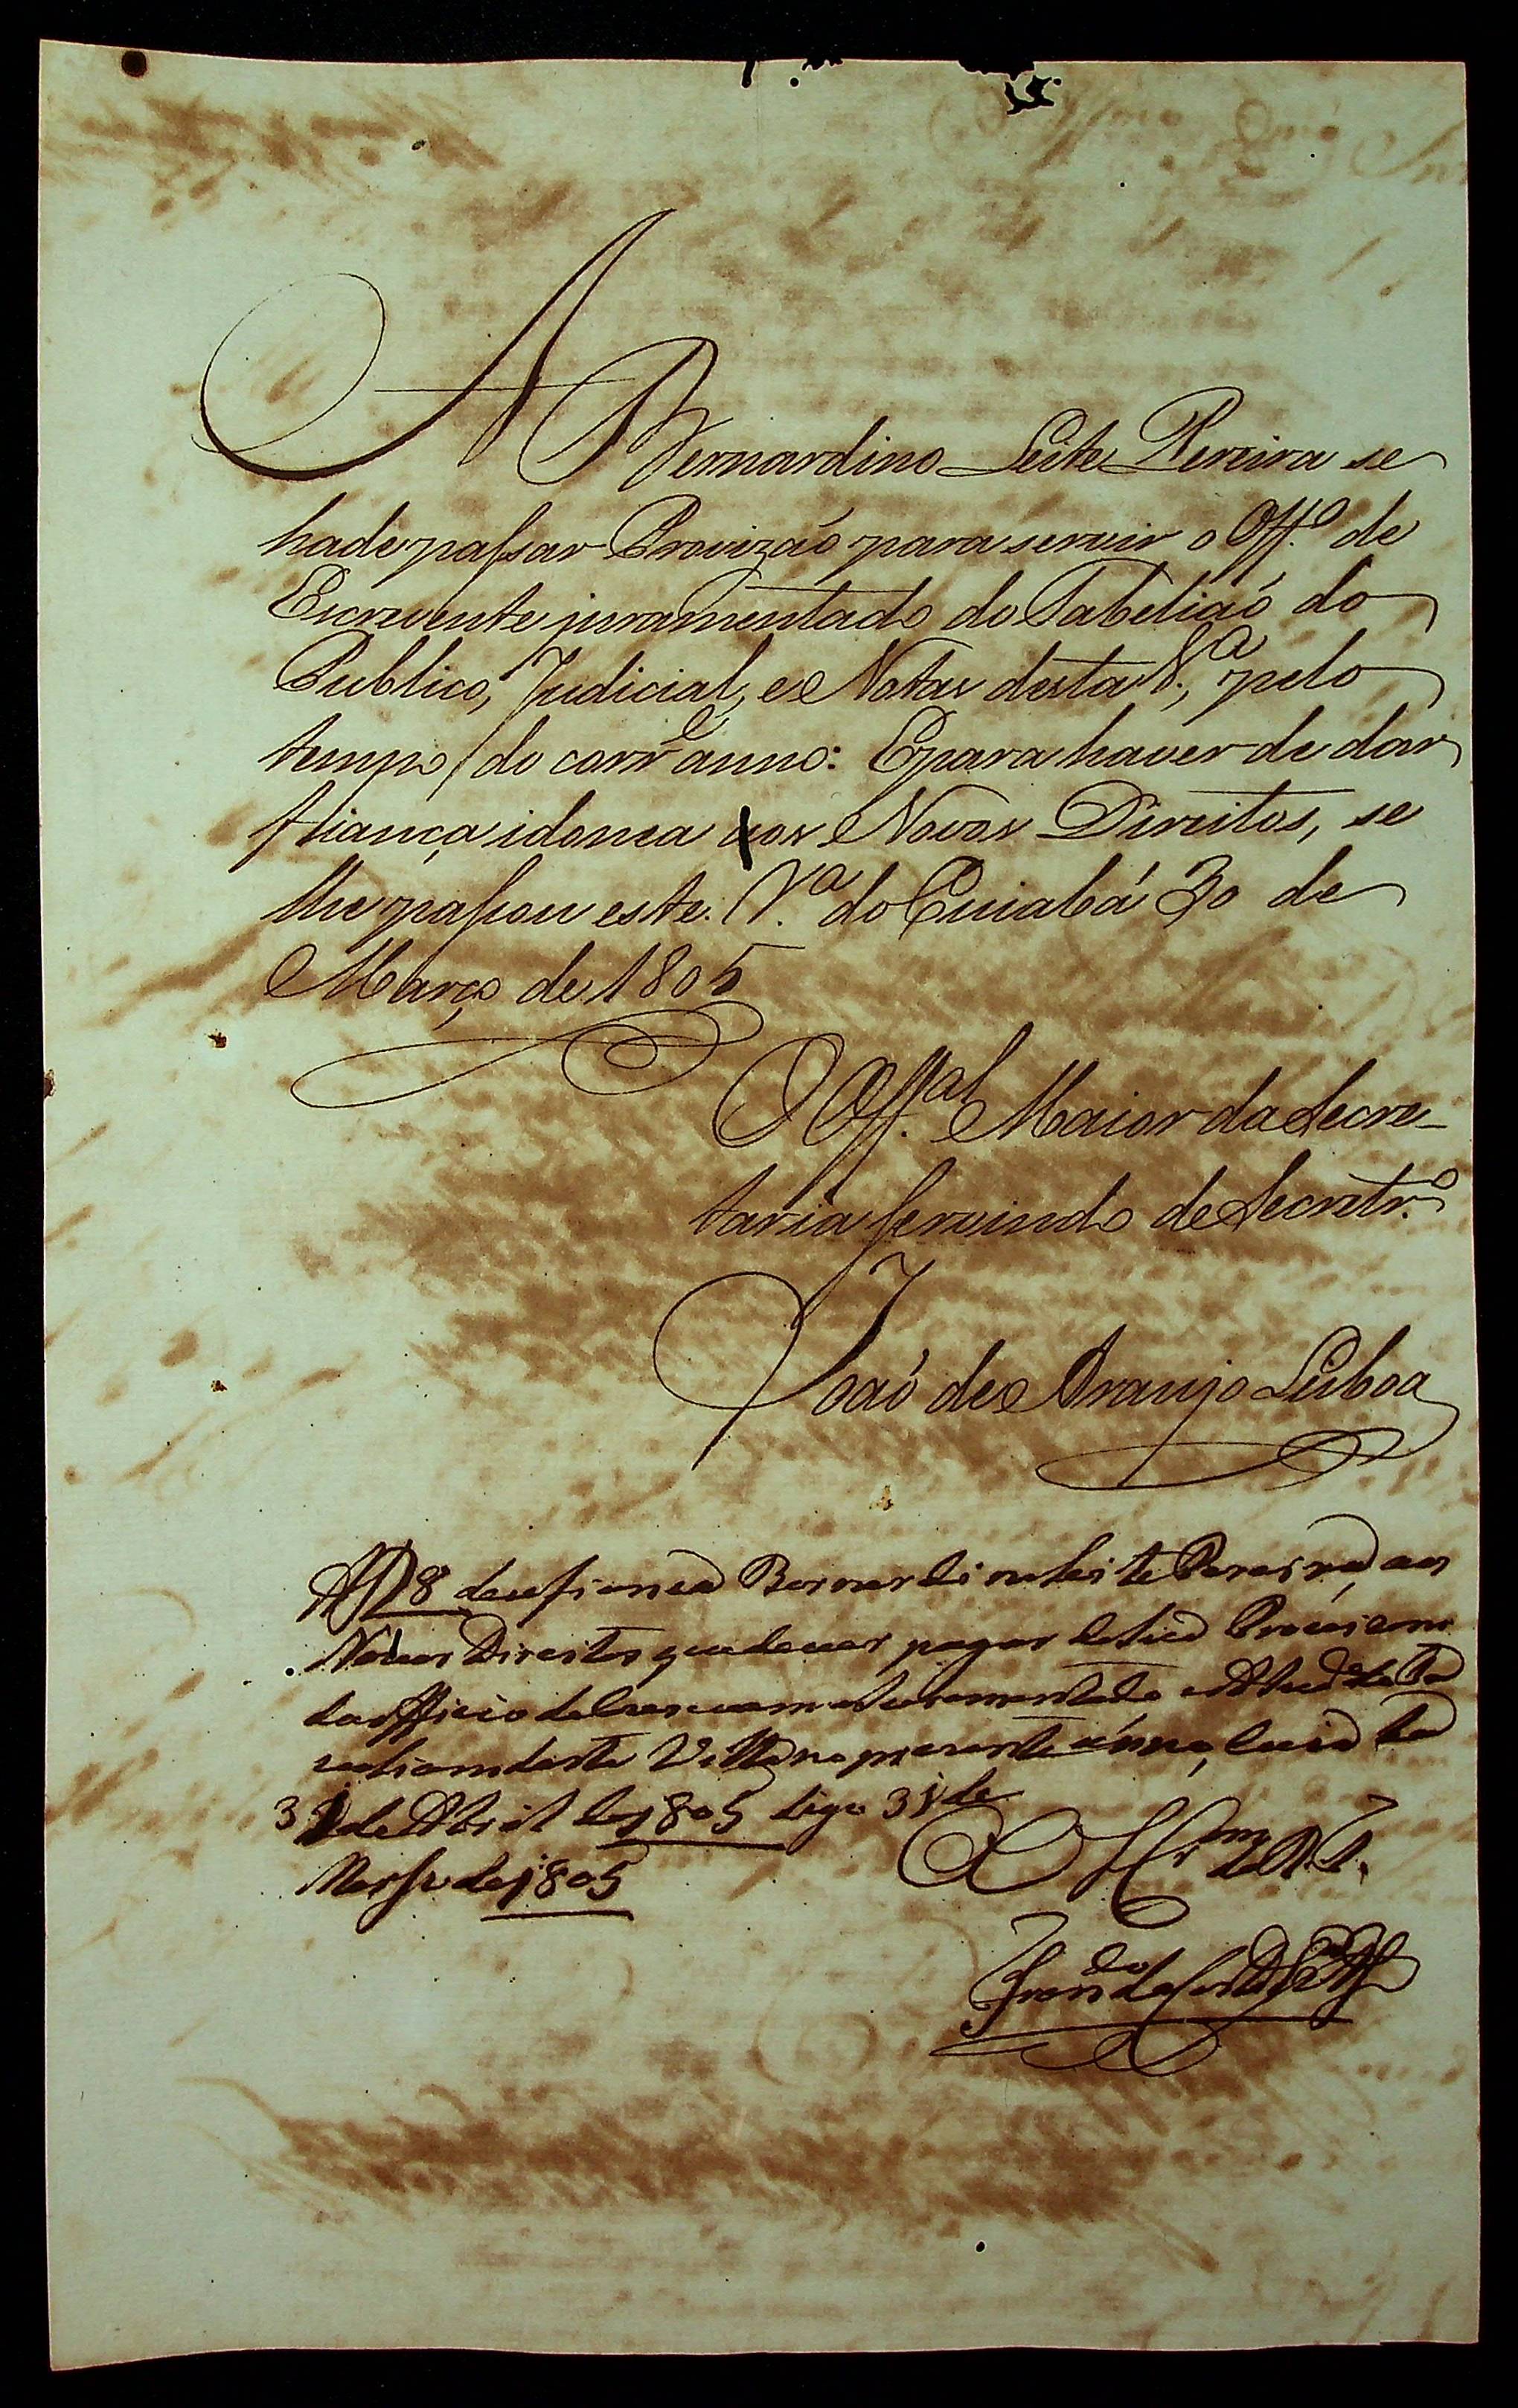 A Bernardino Leite Pereira se
hade passar Provizaõ para servir o Off.º de
Escrevente juramentado do Tabeliaõ do
Publico, Judicial, e Notas desta V.ª, pelo
tempo do corr.e anno: E para haver de dar
fiança idonea aos Novos Direitos, se
lhe passou este. V.ª do Cuiabá 30 de
Março de 1805
O Off.al Maior da Secre-
taria servindo de Secretr.º
Joaõ de Araujo Lisboa
Af 8 deu fianca Bernardino Leite Pereira, aos
Novos Direitos que dever pagar da sua Provizam
do officio de Escrevente Juramentado
desta Villa no presente anno, Cuiabá
31 de Abril de 1805 digo 31 de
Marso de 1805